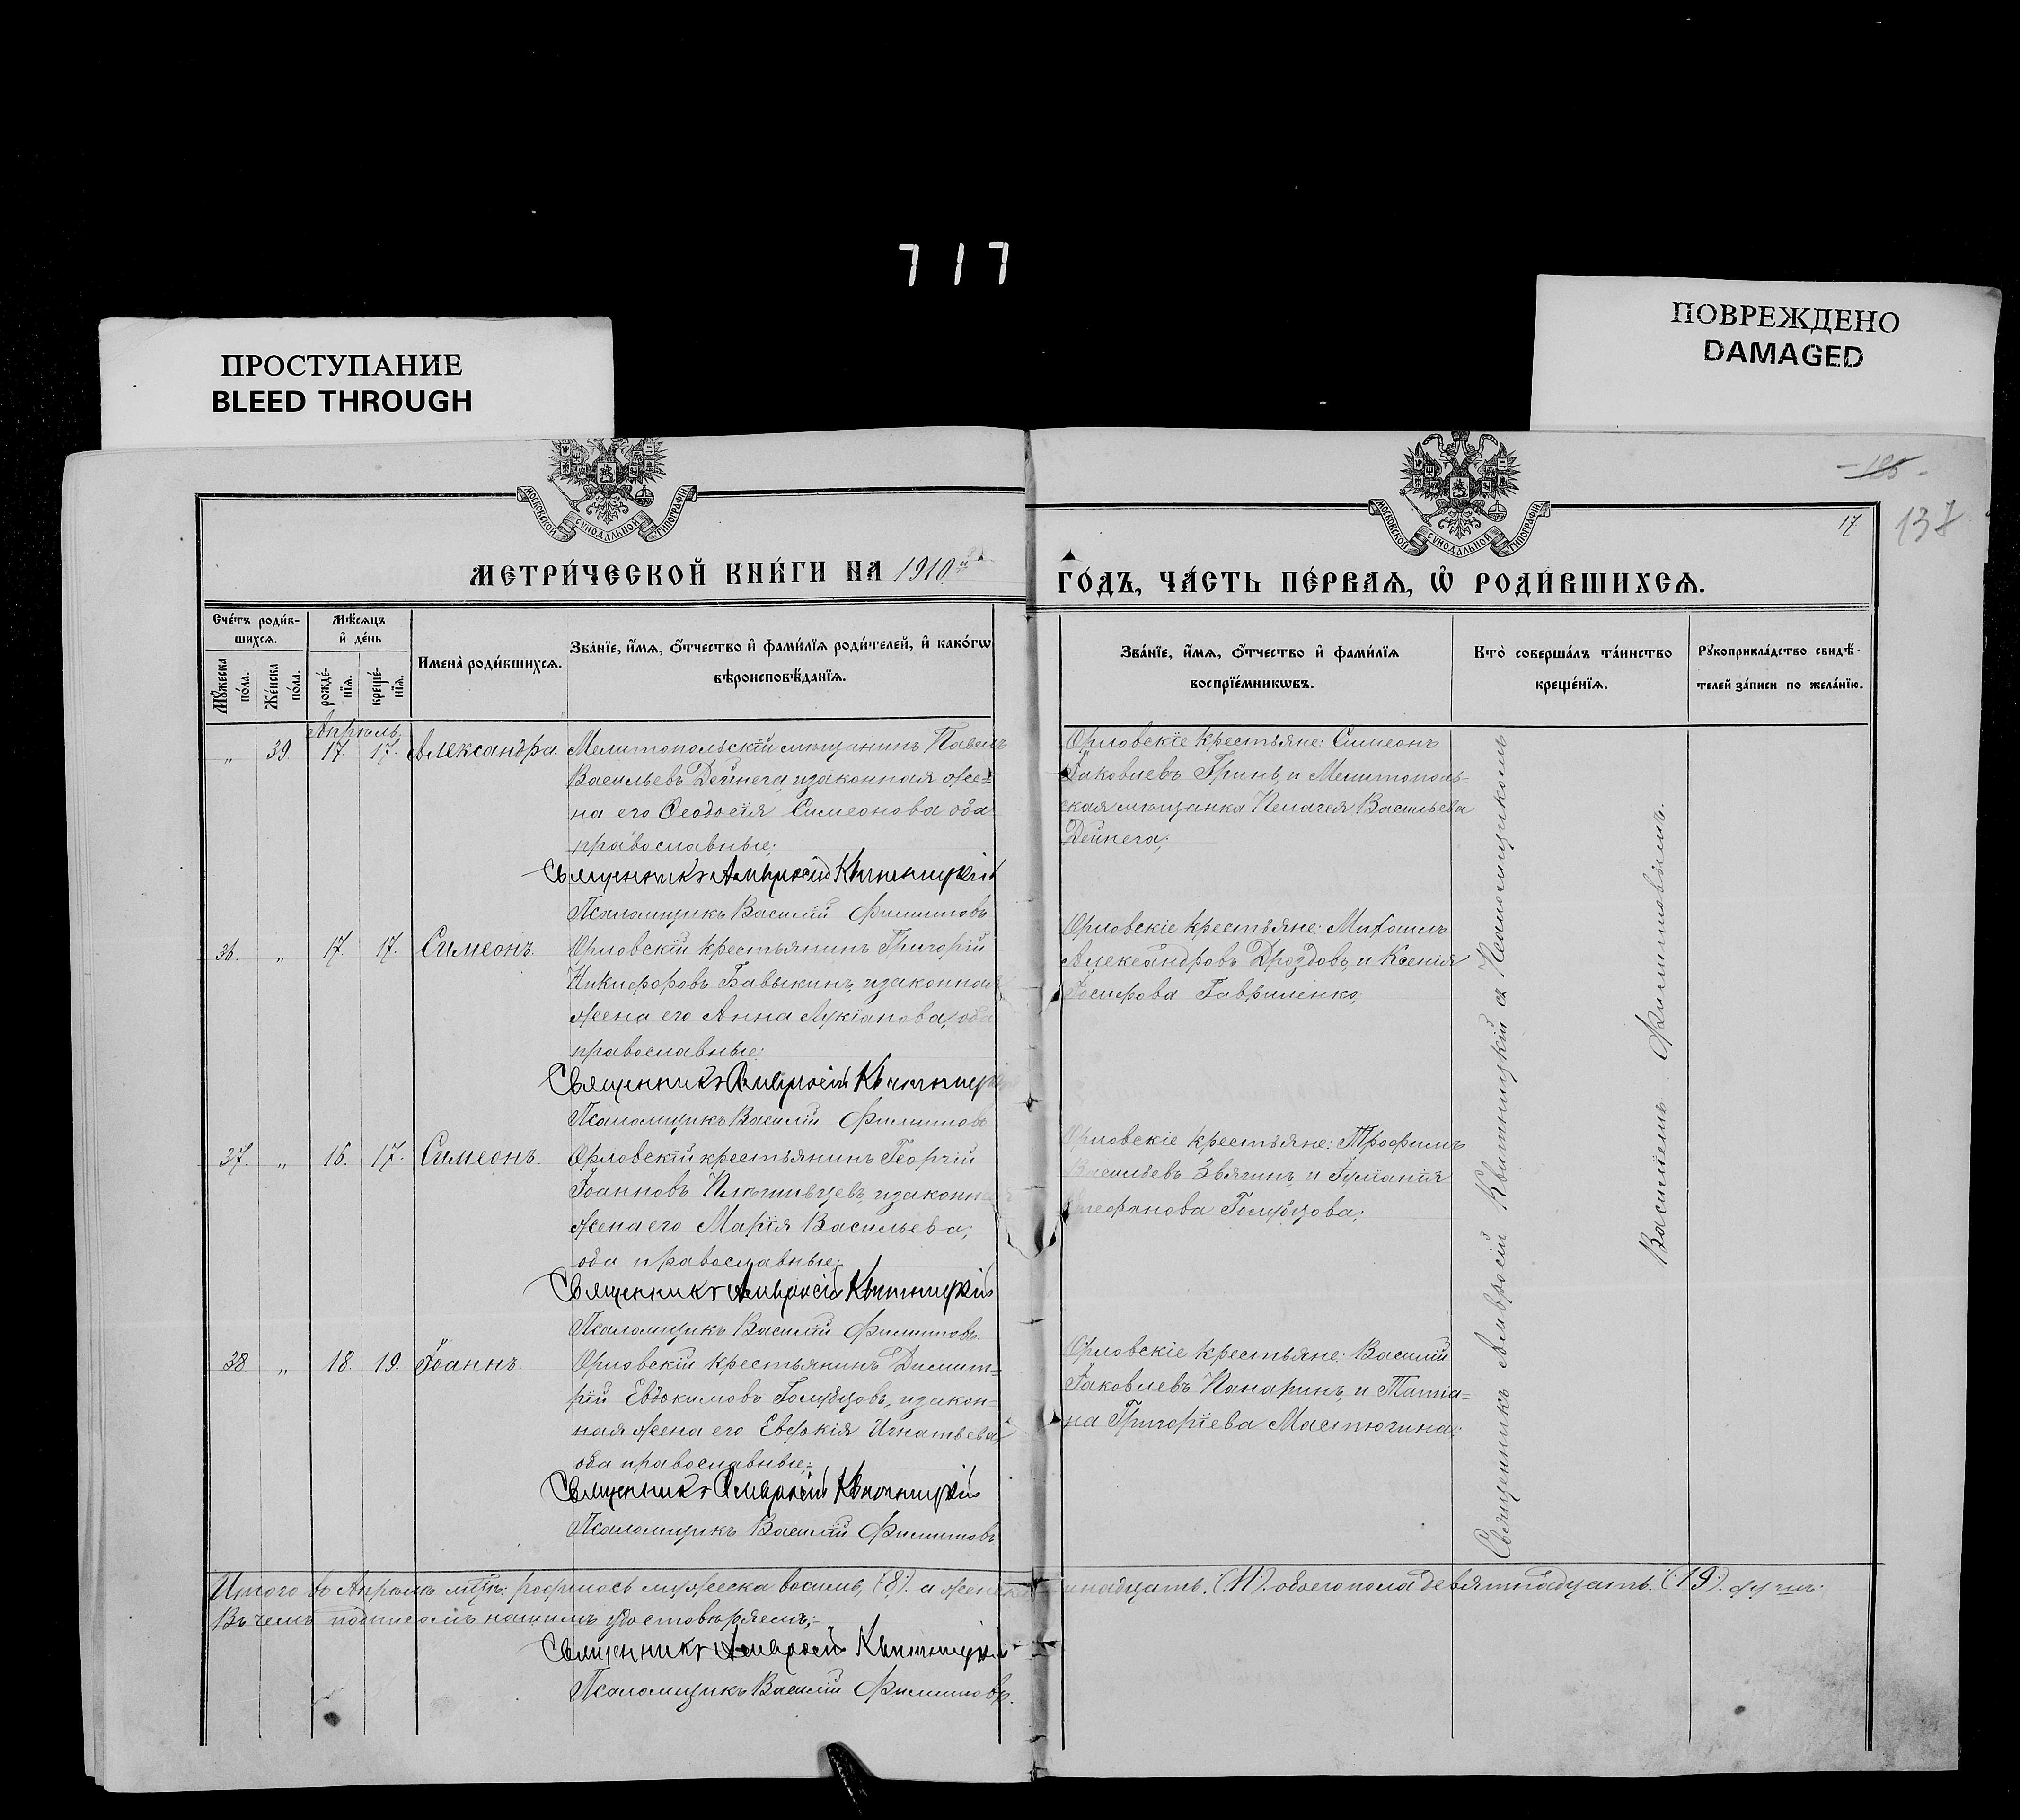 717
ПРОСТУПАНИЕ
BLEED THROUGH
ПОВРЕЖДЕНО
DAMAGED
МОСКОВСКОЙ СУНОДАЛЬНОЙ ТИПОГРАФІИ
МОСКОВСКОЙ СУНОДАЛЬНОЙ ТИПОГРАФІИ
17
137
МЕТРИ́ЧЕСКОЙ КНИ́ГИ НА 1910й
ГО́ДЪ, ЧА́СТЬ ПЕ́РВАѦ, Ѡ҆ РОДИ́ВШИХСѦ.
Сче́тъ роди́в-
шихсѧ.
Мꙋ́жеска по́ла.
Же́нска по́ла.
Мѣ́сѧцъ
и҆ де́нь
рожде́-
нїѧ.
креще́-
нїѧ.
Имена̀ роди́вшихсѧ.
Зва́нїе, и҆́мѧ, ѻ҆́тчество и҆ фами́лїѧ роди́телей, и҆ како́гѡ
вѣроисповѣ́данїѧ.
Зва́нїе, и҆́мѧ, ѻ҆́тчество и҆ фами́лїѧ
воспрїе́мникѡвъ.
Кто̀ соверша́лъ та́инство
креще́нїѧ.
Рꙋкоприкла́дство свидѣ́-
телей за́писи по жела́нїю.
Апрѣль
„ 39. 17. 17. Александра.
Мелитопольскій мѣщанинъ Павелъ
Васильевъ Дейнега, и законная же=
на его Ѳеодосія Симеонова оба
православные;
Священникъ Амвросій Квитницкій
Псаломщикъ Василій Филиповъ
Орловскіе крестьяне: Симеонъ
Іаковлевъ Гринь, и Мелитополь=
ская мѣщанка Пелагея Васильева
Дейнега;
36. „ 17. 17. Симеонъ.
Орловскій крестьянинъ Григорій
Никифоровъ Бавыкинъ, и законная
жена его Анна Лукіанова, оба
православные;
Священникъ Амвросій Квитницкій
Псаломщикъ Василій Филиповъ
Орловскіе крестьяне: Михаилъ
Александровъ Дроздовъ, и Ксенія
Іосифова Гавриленко;
37. „ 16. 17. Симеонъ.
Орловскій крестьянинъ Георгій
Іоанновъ и законная
жена его Марія Васильева,
оба православные;
Священникъ Амвросій Квитницкій
Псаломщикъ Василій Филиповъ
Орловскіе крестьяне: Трофимъ
Васильевъ Звягинъ, и Іуліанія
Голубцова;
38. „ 18. 19. Іоаннъ.
Орловскій крестьянинъ Димит=
рій Евдокимовъ Голубцовъ, и закон=
ная жена его Евдокія Игнатьева,
оба православные;
Священникъ Амвросій Квитницкій
Псаломщикъ Василій Филиповъ
Орловскіе крестьяне: Василій
Іаковлевъ Панаринъ, и Татіа=
на Григоріева Мастюгина;
Священникъ Амвросій Квитницкій съ Псаломщикомъ
Василіемъ Филиповымъ.
Итого въ Апрѣлѣ м-цѣ: родилось мужеска восемь, (8). а женска надцать. (11). обоего пола девятнадцать. (19). душъ.
Въ чемъ подписомъ нашимъ удостовѣряемъ;
Священникъ Амвросій Квитницкій
Псаломщикъ Василій Филиповъ.